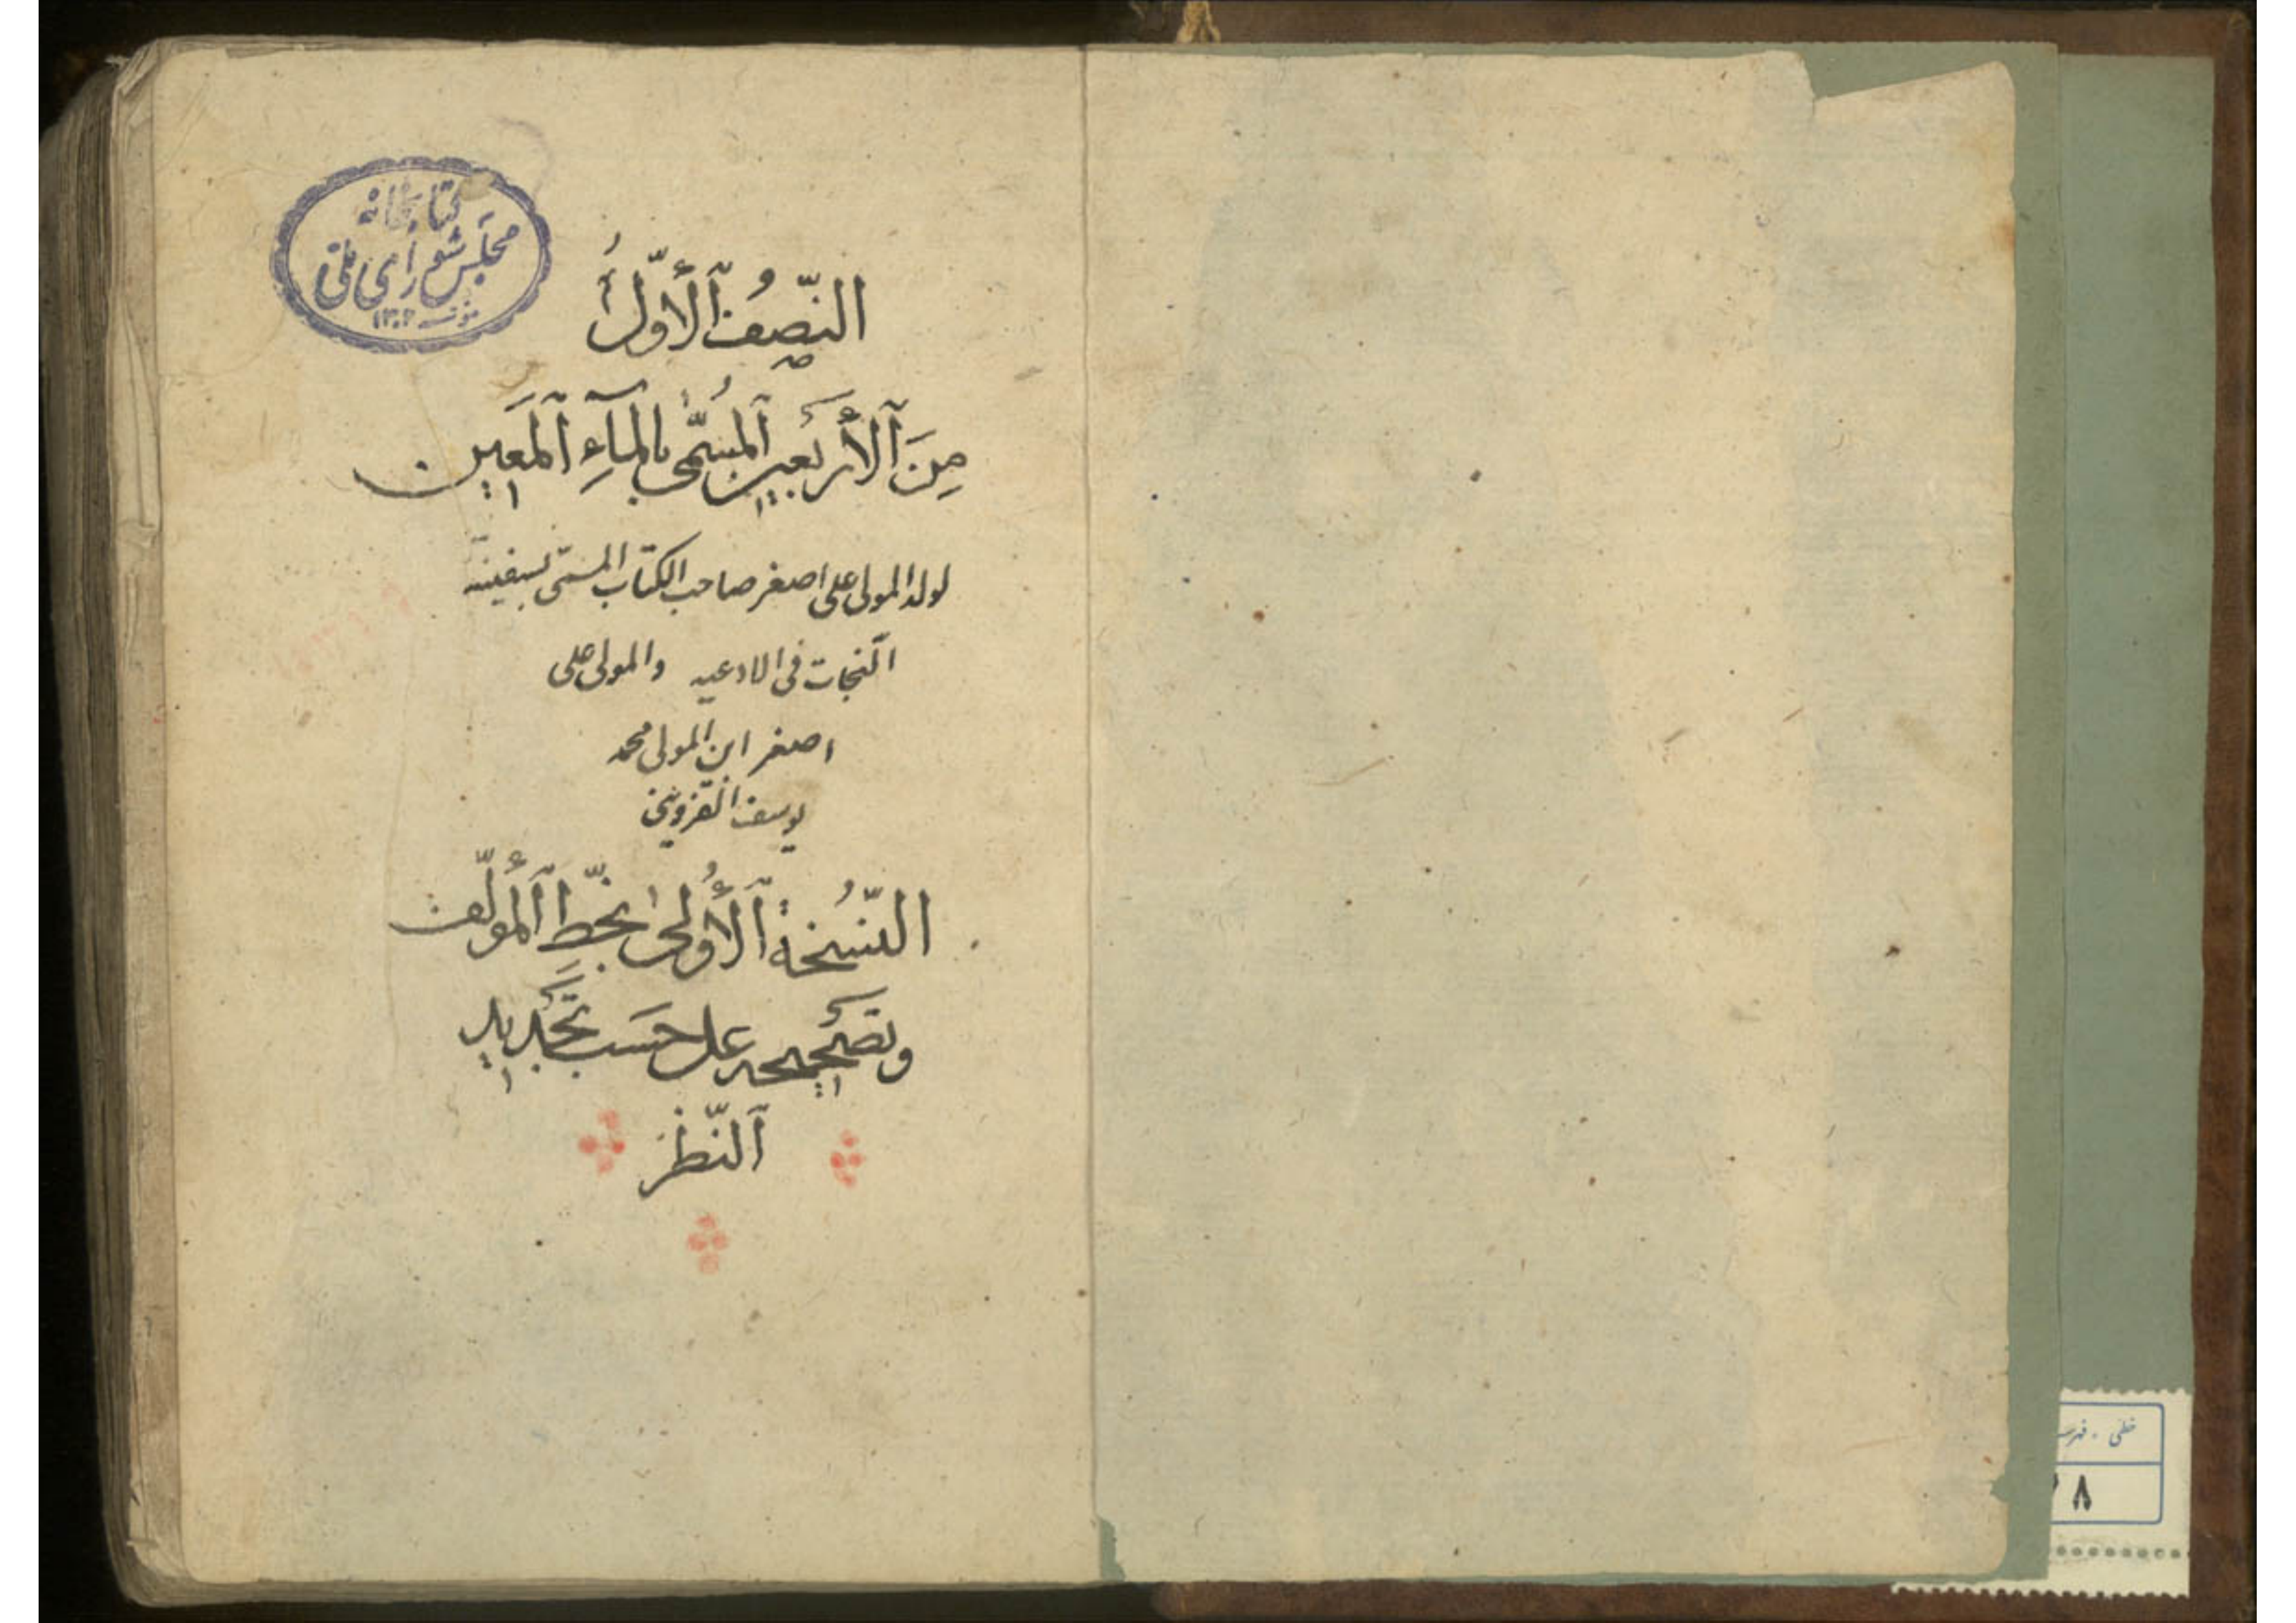 كتابخانهٔ
مجلس شورای ملی
١٣٠٢
النِّصفُ ٱلأَوَّلُ
مِنَ ٱلأَربَعينَ ٱلمُسَمّىٰ بالمآءِ ٱلمَعينِ
لولد المولی علی اصغر صاحب الکتاب المسمّی بسفینة
النّجات فی الادعیه والمولی علی
اصغر ابن المولی محمد
یوسف القزوینی
النُّسخَةُ ٱلأُولىٰ بخَطِّ ٱلمُؤَلِّف
وتَصحيحه على حَسَبِ تَجديدِ
ٱلنَّظَر
خطی ـ فهرست
٨